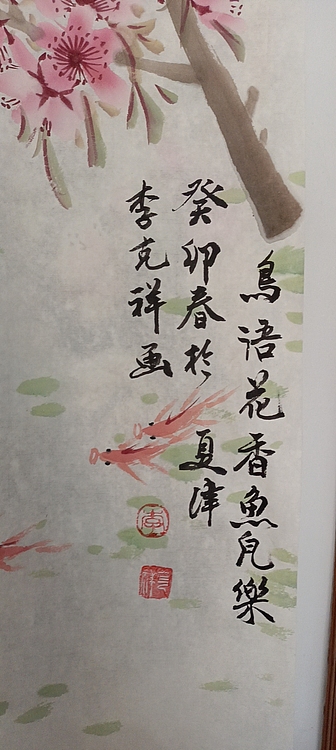 鳥語花香魚兒樂
癸卯春於夏津
李克祥画
李